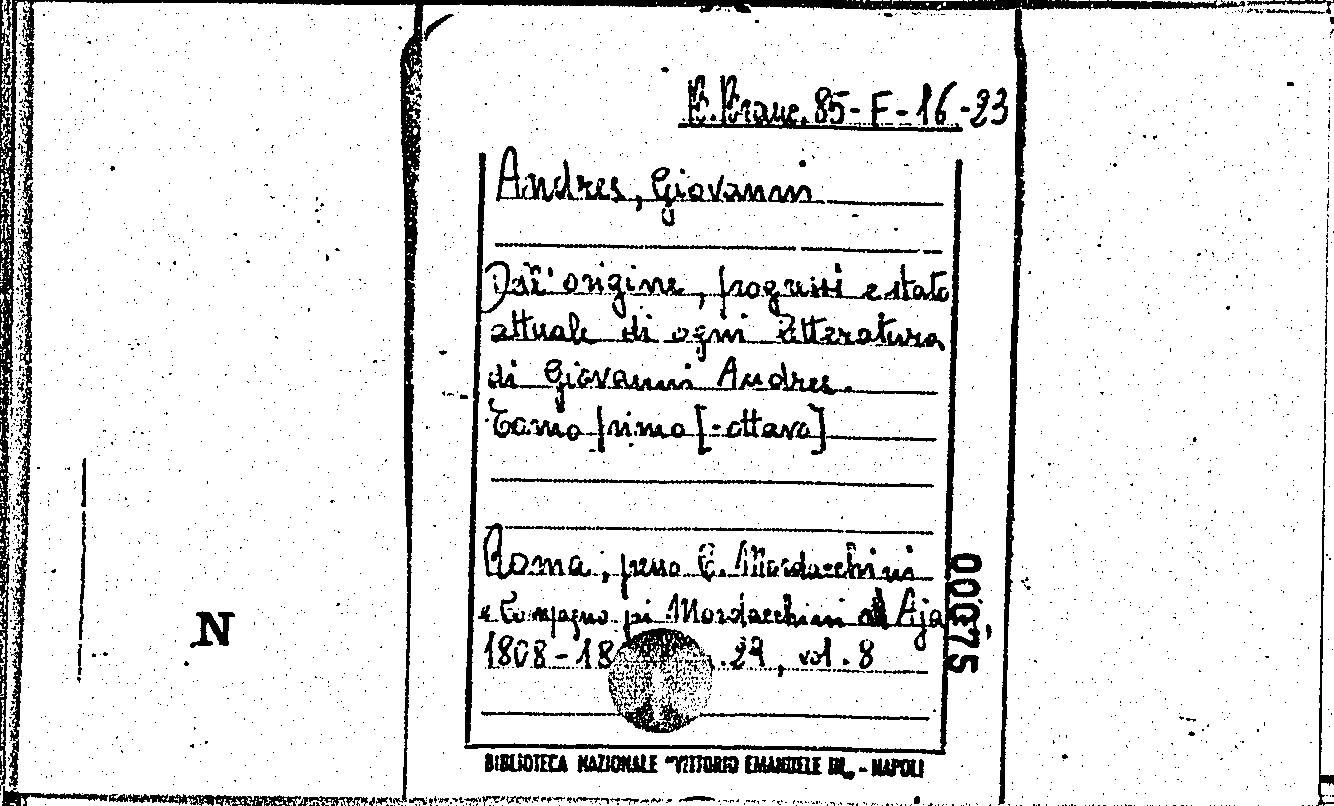 B.Branc. 85-F-16-23
Andres, Giovanni
Dell'origine, progressi e stato
attuale di ogni letteratura
di Giovanni Andres.
Tomo primo [-ottavo]
Roma, presso C. Mordacchini
e Compagno pi Mordacchini
1808-18 vol. 8
000075
N
BIBLIOTECA NAZIONALE "VITTORIO EMANUELE III" - NAPOLI